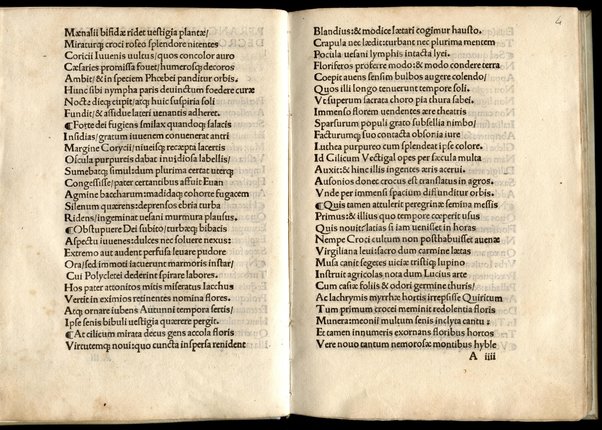 Mænalii bifidæ ridet uestigia plantæ/
Miraturq; croci roseo splendore nitentes
Coricii Iuuenis uultus/ quos concolor auro
Cæsaries promissa fouet/ humerosq; decoros
Ambit/ & in speciem Phœbei panditur orbis.
Hunc sibi nympha paris deuinctum foedere curæ
Nocte dieq; cupit/ atq; huic suspiria soli
Fundit/ & assidue lateri uenantis adheret.
¶ Forte dei fugiens smilax quandoq; salacis
Insidias/ gratum iuuenem conuenerat antri
Margine Corycii/ niuesiq; recepta lacertis
Oscula purpureis dabat inuidiosa labellis/
Sumebatq; simul: dum plurima certat uterq;
Congessisse/ pater certantibus affuit Euan
Agmine baccharum: madidaq; cohorte fugacem
Silenum quærens: deprensos ebria turba
Ridens/ ingeminat uesani murmura plausus.
¶ Obstupuere Dei subito/ turbaq; bibacis
Aspectu iuuenes: dulces nec soluere nexus:
Extremo aut audent perfusi leuare pudore
Ora/ sed immoti iacuerunt marmoris instar/
Cui Polycleti dederint spirare labores.
Hos pater attonitos mitis miseratus Iacchus
Vertit in eximios retinentes nomina flores.
Atq; ornare iubens Autunni tempora sertis/
Ipse senis bibuli uestigia quærere pergit.
¶ At cilicum mirata decus gens accola floris
Virtutemq; noui: quo cuncta inspersa renident
4
Blandius: & modice lætari cogimur hausto.
Crapula nec lædit: turbant nec plurima mentem
Pocula uesani lymphis intacta lyei.
Floriferos proferre modo: & modo condere terra
Coepit auens sensim bulbos augere colendo/
Quos illi longo tenuerunt tempore soli.
Vt superum sacrata choro pia thura sabei.
Immenso florem uendentes ære theatris
Sparsurum populi grato subsellia nimbo/
Facturumq; suo contacta obsonia iure
Luthea purpureo cum splendeat ipse colore.
Id Cilicum Vectigal opes per sæcula multa
Auxit: & hinc illis ingentes æris acerui.
Ausonios donec crocus est translatus in agros.
Vnde per immensi spacium diffunditur orbis.
¶ Quis tamen attulerit peregrinæ semina messis
Primus: & illius quo tempore cœperit usus
Quis nouit? latias si iam uenisset in horas
Nempe Croci cultum non posthabuisset auenæ
Virgiliana leui: sacro dum carmine lætas
Musa canit segetes uiciæ tristisq; lupino
Instruit agricolas nota dum Lucius arte
Cum casiæ foliis & odori germine thuris/
Ac lachrymis myrrhæ hortis irrepsisse Quiritum
Tum primum croceI meminit redolentia floris
Munera: mæonii multum senis inclyta cantu:
Et tamen innumeris exornans floribus hortos
Vere nouo tantum nemorosæ montibus hyblę
A iiii